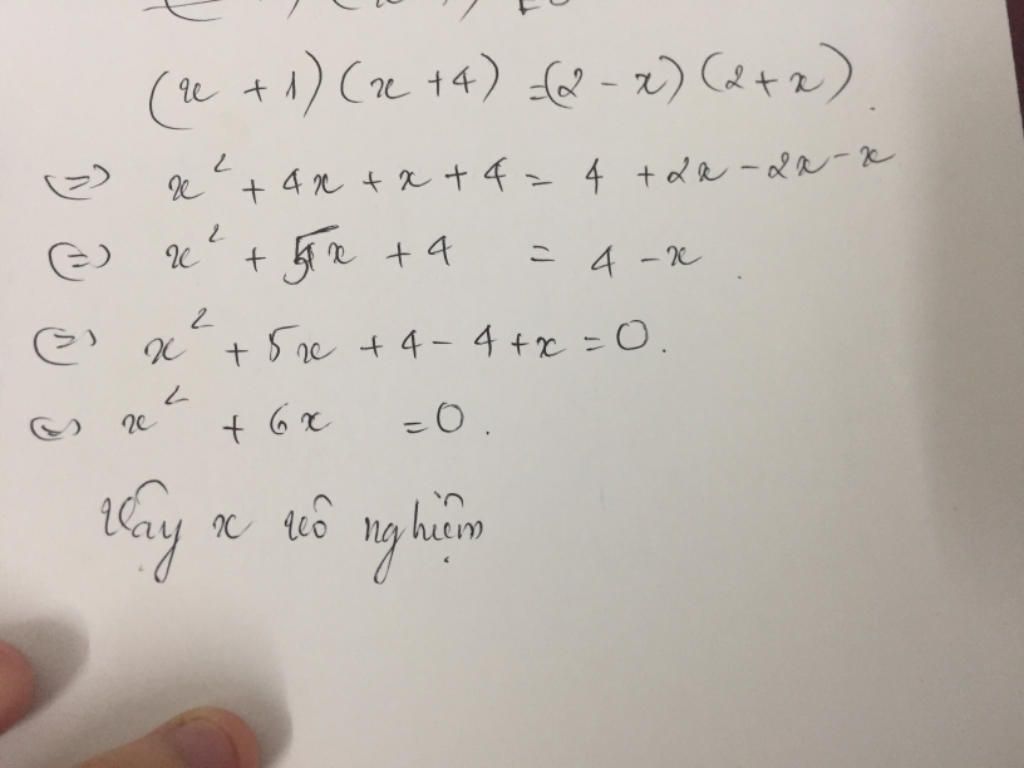 (x + 1) (x + 4) = (2 - x) (2 + x).
(=) x² + 4x + x + 4 = 4 + 2x - 2x - x
(=) x² + 5x + 4 = 4 - x.
(=) x² + 5x + 4 - 4 + x = 0.
(=) x² + 6x = 0.
Vậy x vô nghiệm